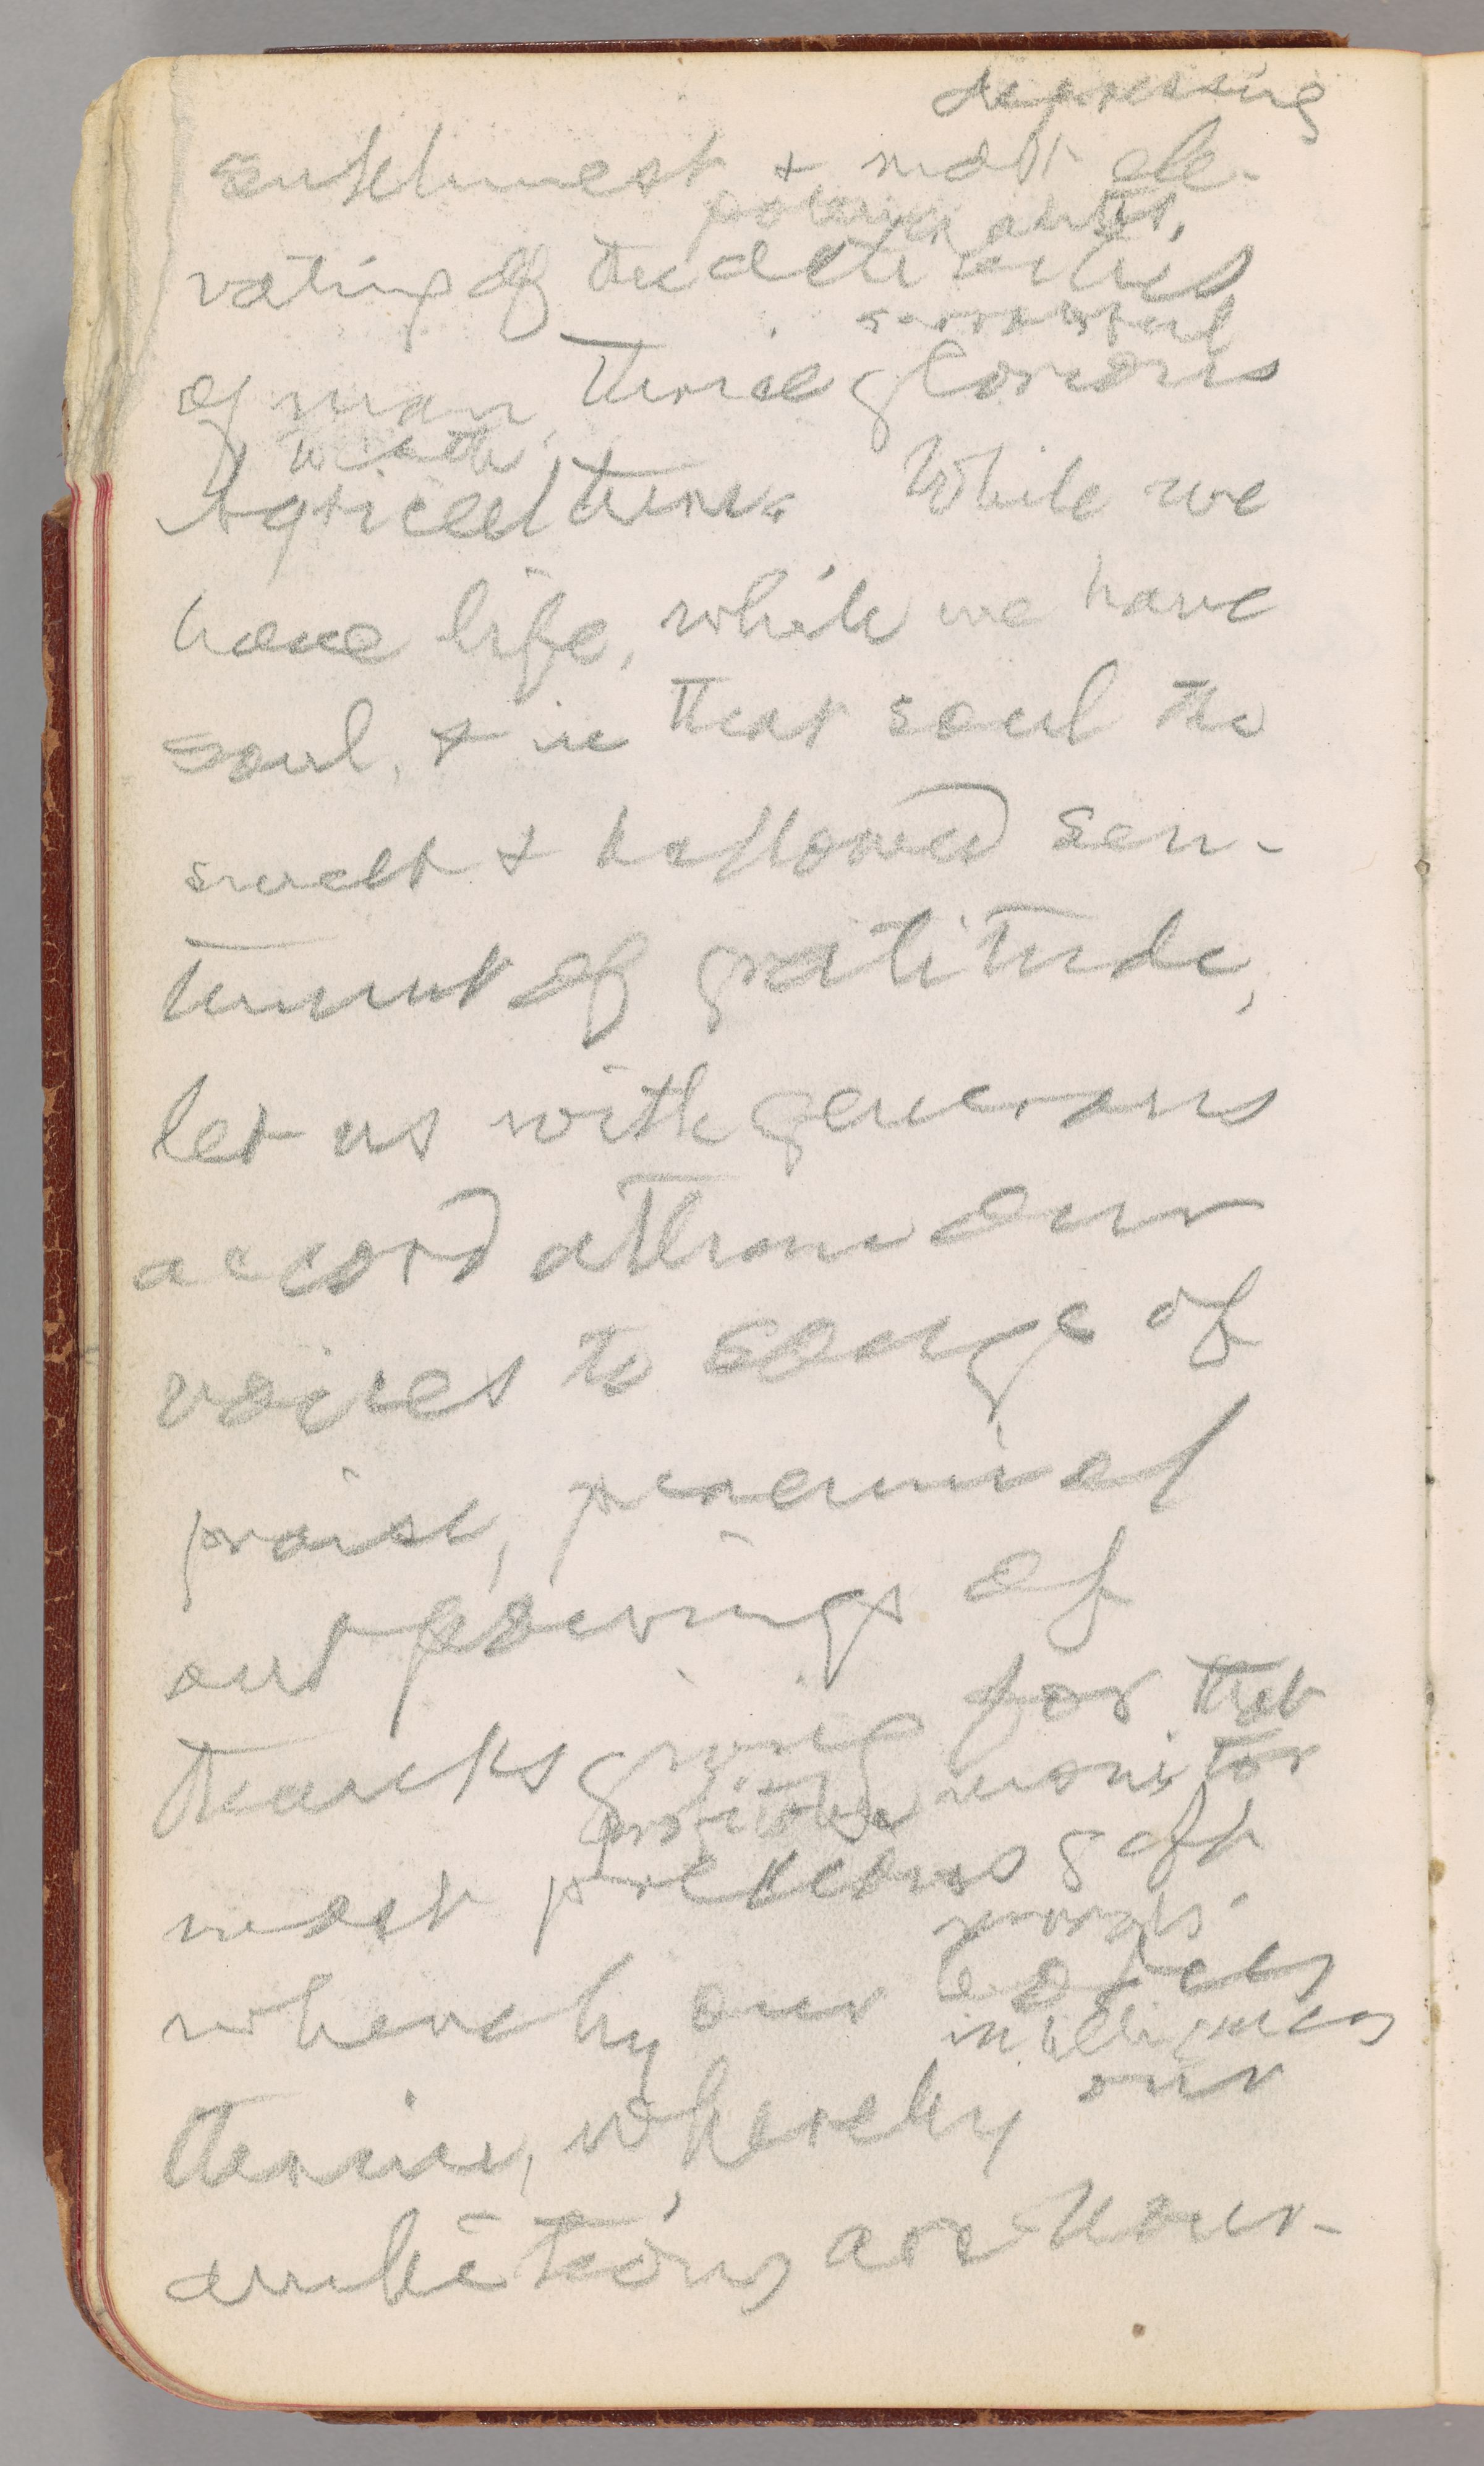 depressing
sublimest & most ele-
vating of the activities
sorrowful
of man, thrice glorious
death
Agriculture. While we
have life, while we have
soul, & in that soul the
sweet & hallowed sen-
timent of gratitude,
let us with generous
accord attune our
voices to songs of
praise, perennial
out pourings of
thanksgiving for that
monitor
most precious gift
morals
whereby our bodies
intelligences
thrive, whereby our
ambitions are nour-